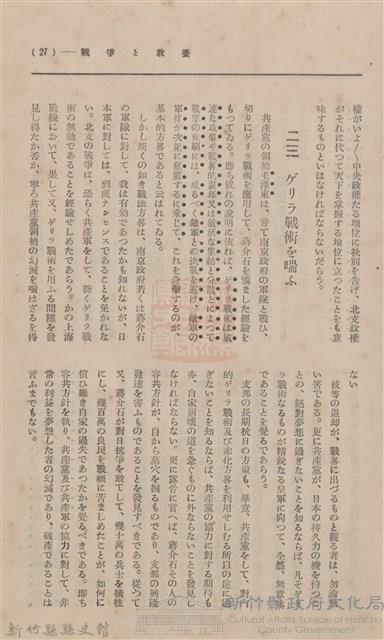 (27)——戰爭と敎養
權がいよ〱中央政權たる地位に訣別を告げ、北支政權
がそれに代つて天下を掌握する地位に立つたことをも意
味するものといはなければならないだらう。
二三 ゲリラ戰術を嗤ふ
共產黨の領袖毛澤東は、嘗て南京政府の軍隊と戰ひ、
切りにゲリラ戰術を應用して、蔣介石を惱ました經驗を
もつてゐる。卽ち彼れの說明に依れば、ゲリラ戰は敏
速な攻擊や戰術的退却又は敏活な集結と分散とによつて
戰爭の初期には、成るべく敵軍との決戰を避け、敵軍の
軍備が次第に衰へるに乘じて、これを急擊するのが、
基本的方畧であると云はれてゐる。
しかし斯くの如き戰法方畧は、南京政府若くは蔣介石
の軍隊に對して、或は有効であつたかも知れないが、日
本軍に對しては、到底ナンセンスであることを免かれな
い。北支の戰爭は、恐らく共產軍をして、能くゲリラ戰
術の無効であることを經驗せしめたであらう。かの上海
戰線において、果して又、ゲリラ戰術を用ふる間隙を發
見し得たか否か、寧ろ共產黨領袖の幻滅を嗤はざるを得
ない
彼等の退却が、戰畧に出づるものと觀る者は、勿論
い筈である。更に共產黨が、日本の持久力の機を待つ
との、絕對夢想に過ぎないことを知るならば、凡そゲ
ラ戰術なるものが精銳なる皇軍に向つて、全然、無意
であることを覺るであらう。
支那の長期抗日の方策も、畢竟、共產黨をして、對
的ゲリラ戰術及び赤化方畧を利用せしむる所以の途に過
ぎないことを知るならば、共產黨の協力に對する期待も
亦、自家崩壞の道を急ぐものに外ならないことを發見し
なければならない。更に露骨に言へば、蔣介石その人の
容共方針が、自から墓穴を掘るものであり、支那の興隆
發達を害ふものであることを發見すべきである。從つて
又、蔣介石が對日抗爭を敢てして、幾十萬の兵士を犧牲
にし、幾百萬の良民を戰禍に苦ましめたことが、如何に
償ひ難き自家の過失であつたかを覺るべきである。卽ち
容共方針を執り、共產黨及び共產軍の協力に對して、非
常の利益を夢想した者の幻滅であり、破產であることは
言ふまでもない。
新竹縣縣史館
新竹縣政府文化局
Cultural Affairs Bureau of Hsinchu
County Government